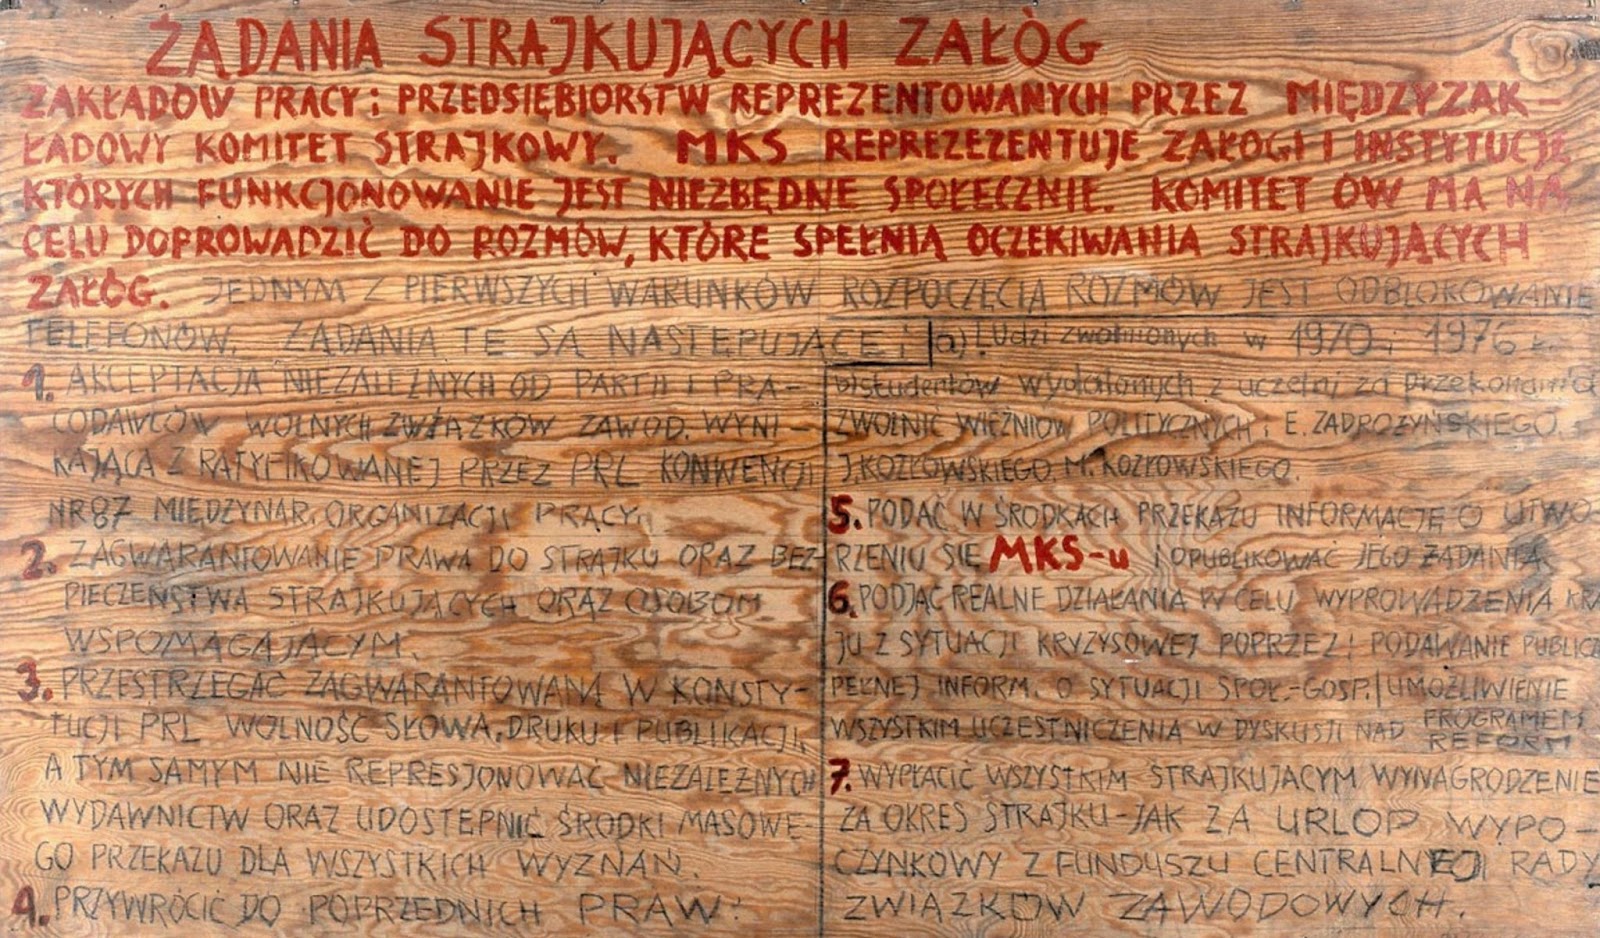 ŻĄDANIA STRAJKUJĄCYCH ZAŁÓG
ZAKŁADÓW PRACY i PRZEDSIĘBIORSTW REPREZENTOWANYCH PRZEZ MIĘDZYZAK-
ŁADOWY KOMITET STRAJKOWY. MKS REPREZEZENTUJE ZAŁOGI I INSTYTUCJE
KTÓRYCH FUNKCJONOWANIE JEST NIEZBĘDNE SPOŁECZNIE. KOMITET ÓW MA NA
CELU DOPROWADZIĆ DO ROZMÓW, KTÓRE SPEŁNIĄ OCZEKIWANIA STRAJKUJĄCYCH
ZAŁÓG. JEDNYM Z PIERWSZYCH WARUNKÓW ROZPOCZĘCIA ROZMÓW JEST ODBLOKOWANIE
TELEFONÓW. ŻĄDANIA TE SĄ NASTĘPUJĄCE:
1. AKCEPTACJA NIEZALEŻNYCH OD PARTII I PRA-
CODAWCÓW WOLNYCH ZWIĄZKÓW ZAWOD. WYNI-
KAJĄCA Z RATYFIKOWANEJ PRZEZ PRL KONWENCJI
NR 87 MIĘDZYNAR. ORGANIZACJI PRACY.
2. ZAGWARANTOWANIE PRAWA DO STRAJKU ORAZ BEZ-
PIECZEŃSTWA STRAJKUJĄCYCH ORAZ OSOBOM
WSPOMAGAJĄCYM.
3. PRZESTRZEGAĆ ZAGWARANTOWANĄ W KONSTY-
TUCJI PRL WOLNOŚĆ SŁOWA, DRUKU I PUBLIKACJI,
A TYM SAMYM NIE REPRESJONOWAĆ NIEZALEŻNYCH
WYDAWNICTW ORAZ UDOSTĘPNIĆ ŚRODKI MASOWE-
GO PRZEKAZU DLA WSZYSTKICH WYZNAŃ.
4. PRZYWRÓCIĆ DO POPRZEDNICH PRAW:
a) Ludzi zwolnionych w 1970 i 1976 r.
b) studentów wydalonych z uczelni za przekonania
ZWOLNIĆ WIĘŹNIÓW POLITYCZNYCH i E. ZADROŻYŃSKIEGO,
J. KOZŁOWSKIEGO, M. KOZŁOWSKIEGO.
5. PODAĆ W ŚRODKACH PRZEKAZU INFORMACJĘ O UTWO-
RZENIU SIĘ MKS-u I OPUBLIKOWAĆ JEGO ŻĄDANIA.
6. PODJĄĆ REALNE DZIAŁANIA W CELU WYPROWADZENIA KRA
JU Z SYTUACJI KRYZYSOWEJ POPRZEZ: PODAWANIE PUBLICZ
PEŁNEJ INFORM. O SYTUACJI SPOŁ.-GOSP. | UMOŻLIWIENIE
WSZYSTKIM UCZESTNICZENIA W DYSKUSJI NAD PROGRAMEM
REFORM
7. WYPŁACIĆ WSZYSTKIM STRAJKUJĄCYM WYNAGRODZENIE
ZA OKRES STRAJKU - JAK ZA URLOP WYPO-
CZYNKOWY Z FUNDUSZU CENTRALNEJ RADY
ZWIĄZKÓW ZAWODOWYCH.